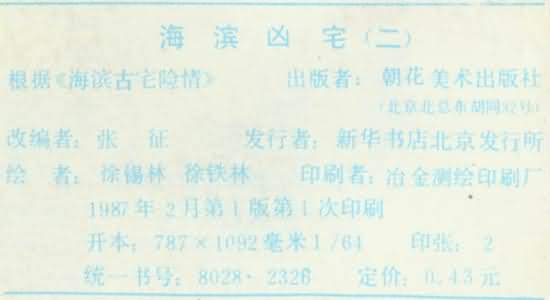 海滨凶宅(二)
根据《海滨古宅险情》 出版者：朝花美术出版社
(北京北总布胡同32号)
改编者：张 征 发行者：新华书店北京发行所
绘 者：徐锡林 徐铁林 印刷者：冶金测绘印刷厂
1987年2月第1版第1次印刷
开本：787×1092毫米1/64 印张：2
统一书号：8028·2326 定价：0.43元